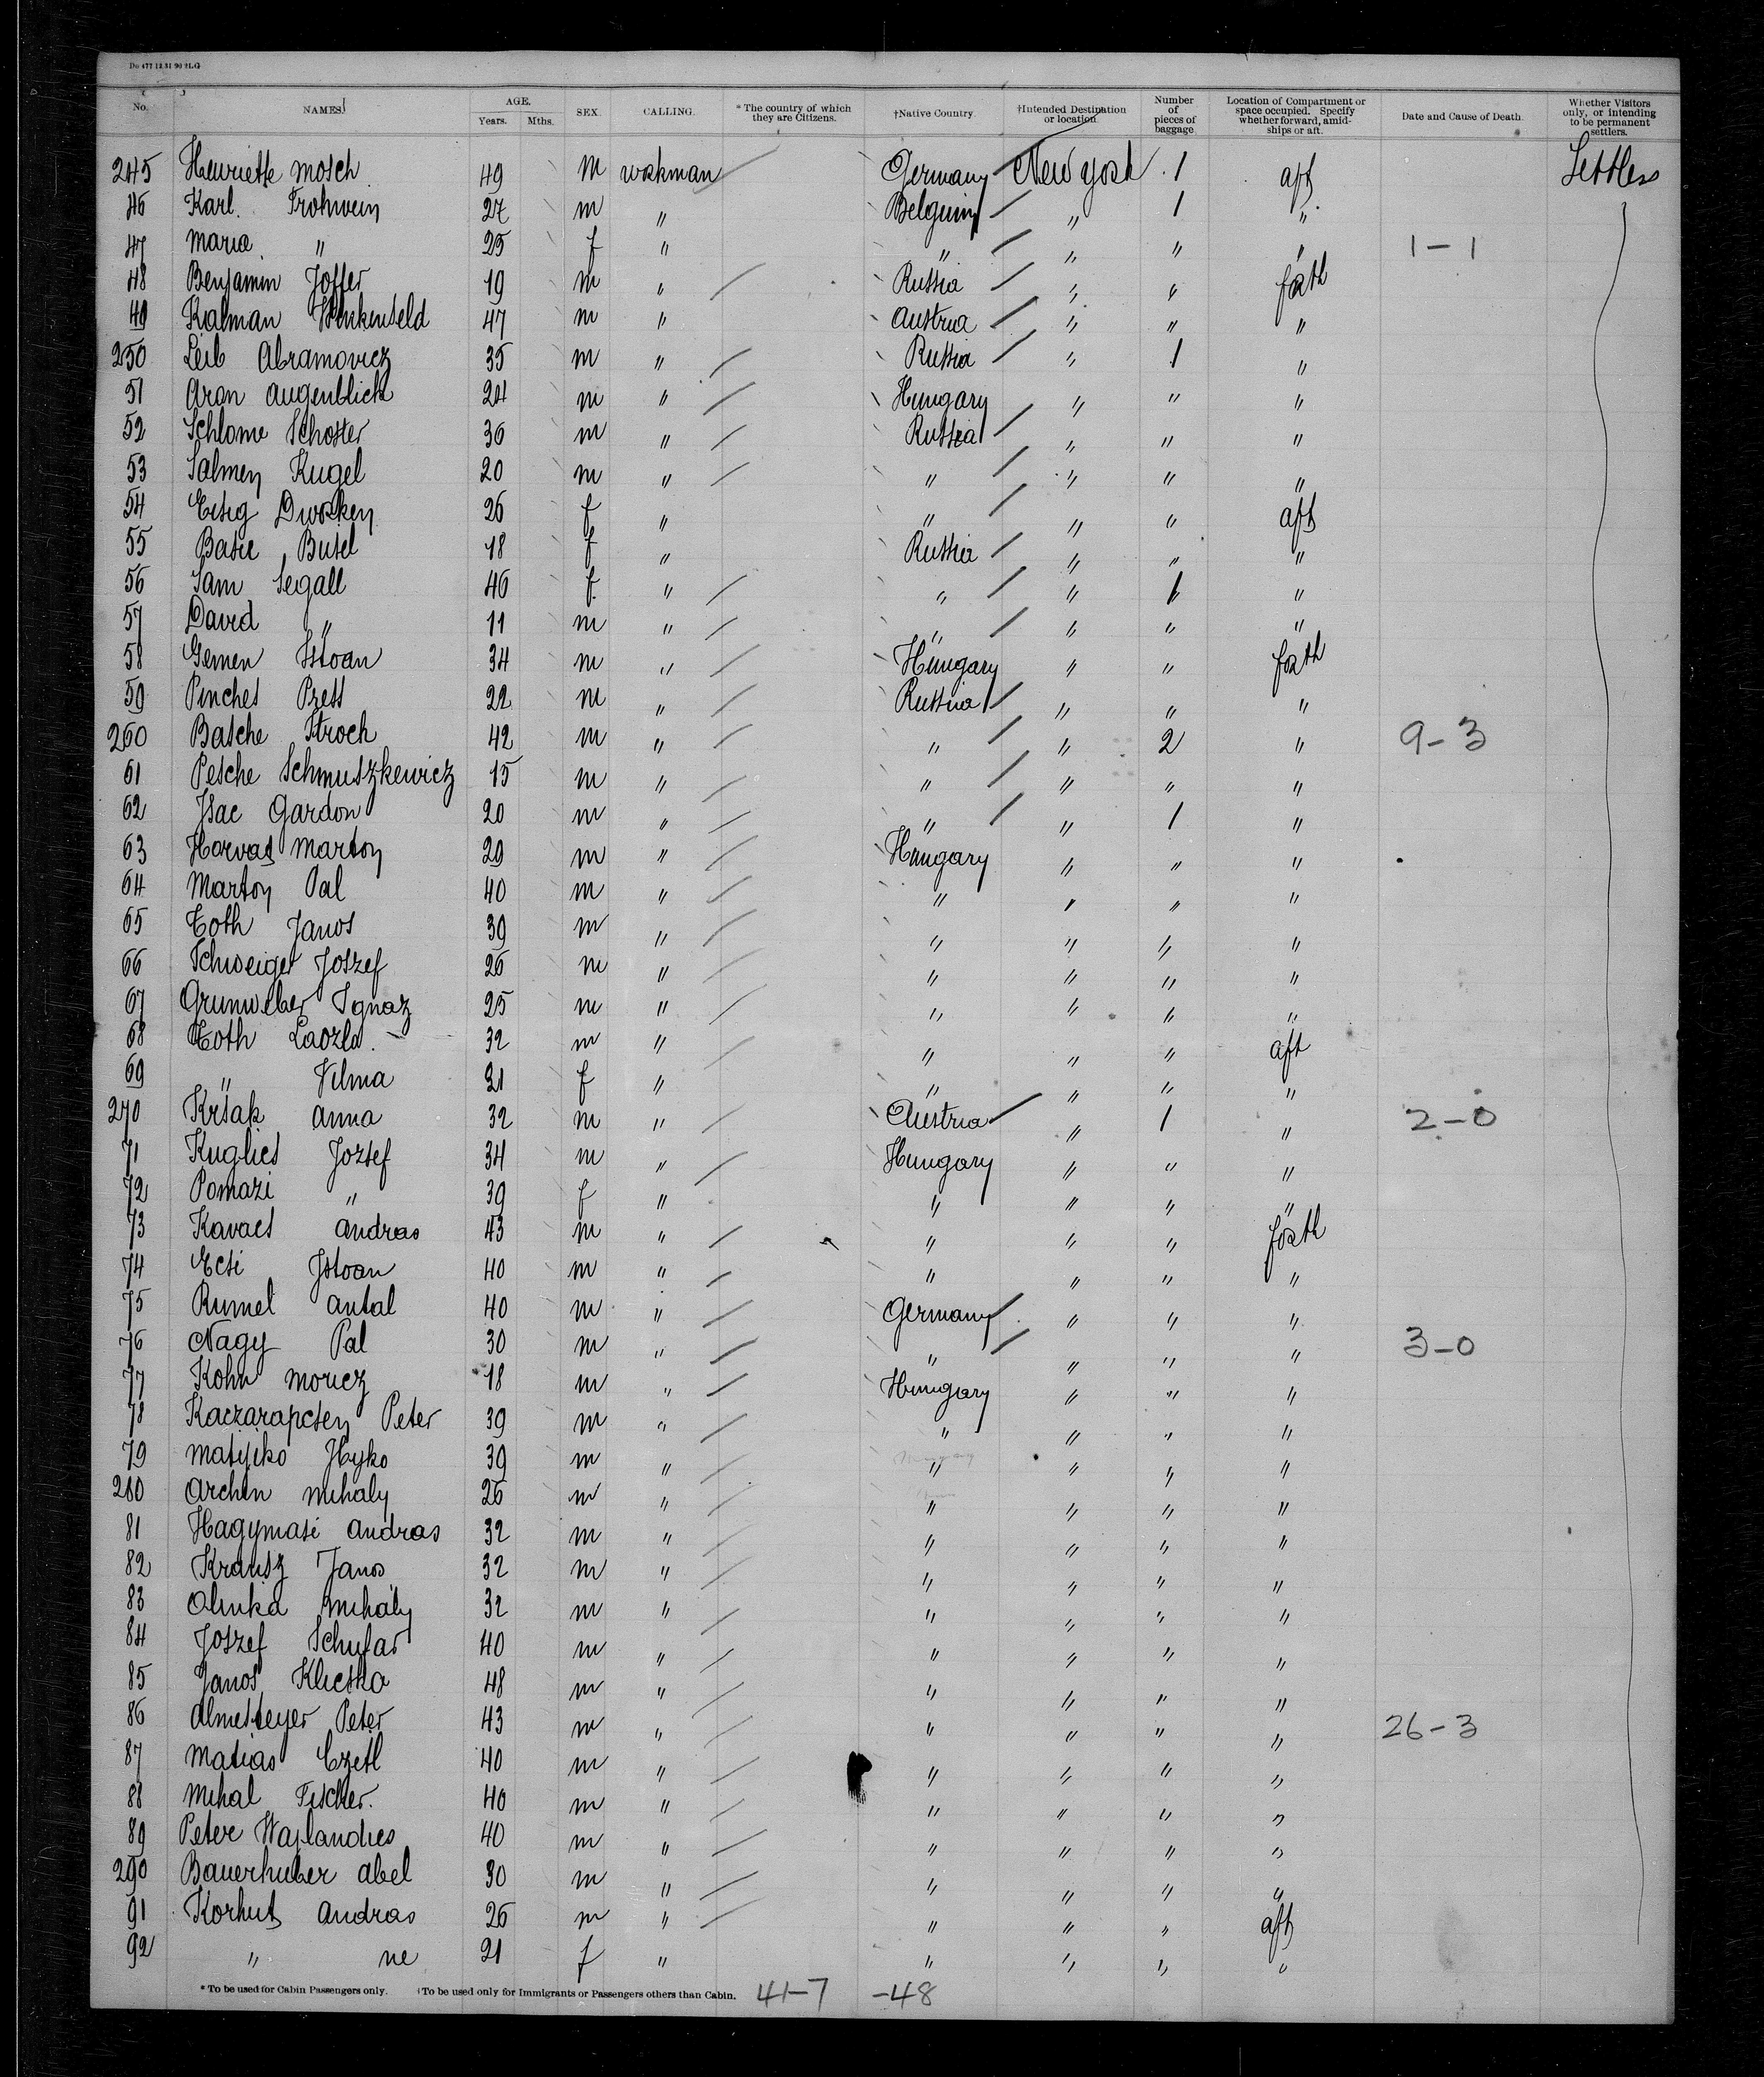 Do 477 12.31 96 21.G
No. NAMES. AGE. Years. Mths. SEX. CALLING. * The country of which they are Citizens. †Native Country. †Intended Destination or location. Number of pieces of baggage. Location of Compartment or space occupied. Specify whether forward, amidships or aft. Date and Cause of Death. Whether Visitors only, or intending to be permanent settlers.
245 Henriette Mosch 49 m workman Germany New York 1 aft Settlers
46 Karl Frohwein 27 m " Belgium " 1 "
47 Maria " 25 f " " " " " 1-1
48 Benjamin Joffer 19 m " Russia " " foxth
49 Kalman 47 m " Austria " " "
250 Leib Abramovicz 35 m " Russia " 1 "
51 Aron Augenblick 24 m " Hungary " " "
52 Schlome Schoster 36 m " Russia " " "
53 Salmen Kugel 20 m " " " " "
54 Eisig Dworken 26 f " " " " aft
55 Basie Busel 18 f " Russia " " "
56 Sam Segall 46 f " " " 1 "
57 David " 11 m " " " " "
58 Gemen Istoan 34 m " Hungary " " foxth
59 Pinches Press 22 m " Russia " " "
260 Basche Stroch 42 m " " " 2 " 9-3
61 Pesche Schmuszkewicz 15 m " " " " "
62 Isac Gardon 20 m " " " 1 "
63 Horvat Marton 29 m " Hungary " " "
64 Marton Pal 40 m " " " " "
65 Toth Janos 39 m " " " " "
66 Schweiger Joszef 26 m " " " " "
67 Grunweber Ignaz 25 m " " " " "
68 Toth Laozlo 32 m " " " " aft
69 " Vilma 31 f " " " " "
270 Krsak Anna 32 m " Austria " 1 " 2-0
71 Kuglics Jozsef 34 m " Hungary " " "
72 Pomazi " 39 f " " " " "
73 Kavacs Andras 43 m " " " " foxth
74 Ecsi Istoan 40 m " " " " "
75 Rumel Antal 40 m " Germany " " "
76 Nagy Pal 30 m " " " " " 3-0
77 Kohn Moricz 18 m " Hungary " " "
78 Kaczarapcsen Peter 39 m " " " " "
79 Matijiko Hyko 39 m " " " " "
280 Archin Mihaly 26 m " " " " "
81 Hagymasi Andras 32 m " " " " "
82 Krausz Janos 32 m " " " " "
83 Olinka Mihaly 32 m " " " " "
84 Joszef Schufar 40 m " " " " "
85 Janos Klicska 48 m " " " " "
86 Almesteyer Peter 43 m " " " " " 26-3
87 Matias Czetl 40 m " " " " "
88 Mihal Fischer. 40 m " " " " "
89 Peter Wajlandics 40 m " " " " "
290 Bauerhuber Abel 30 m " " " " "
91 Korhut Andras 26 m " " " " aft
92 " ne 21 f " " " " "
* To be used for Cabin Passengers only. †To be used only for Immigrants or Passengers others than Cabin. 41-7 -48